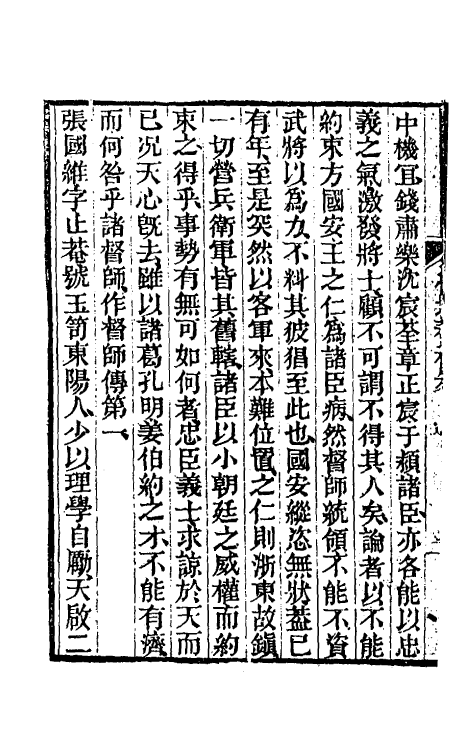 中機宜、錢肅樂沈宸荃章正宸于潁諸臣、亦各能以忠
義之氣激發將士、顧不可謂不得其人矣、論者以不能
約束方國安王之仁爲諸臣病、然督師統領不能不資
武將以爲力、不料其披猖至此也、國安縱恣無狀葢已
有年、至是突然以客軍來、本難位置、之仁則浙東故鎭、
一切營兵衛軍皆其舊轄、諸臣以小朝廷之威權而約
束之、得乎、事勢有無可如何者、忠臣義士、求諒於天而
已、況天心旣去、雖以諸葛孔明姜伯約之才、不能有濟、
而何咎乎諸督師、作督師傳第一、
張國維字止菴號玉笥東陽人、少以理學自勵、天啟二